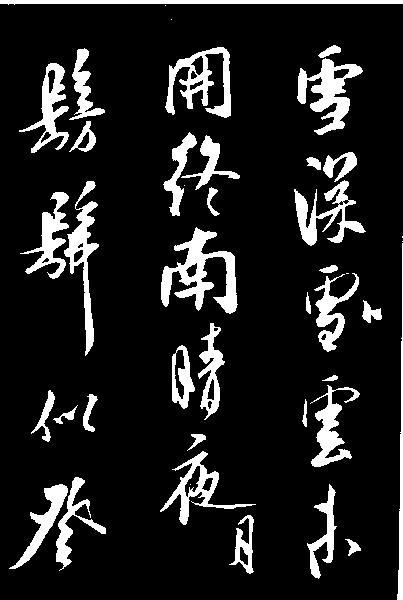 雪深雪雲未
開終南晴夜月
髣髴似登